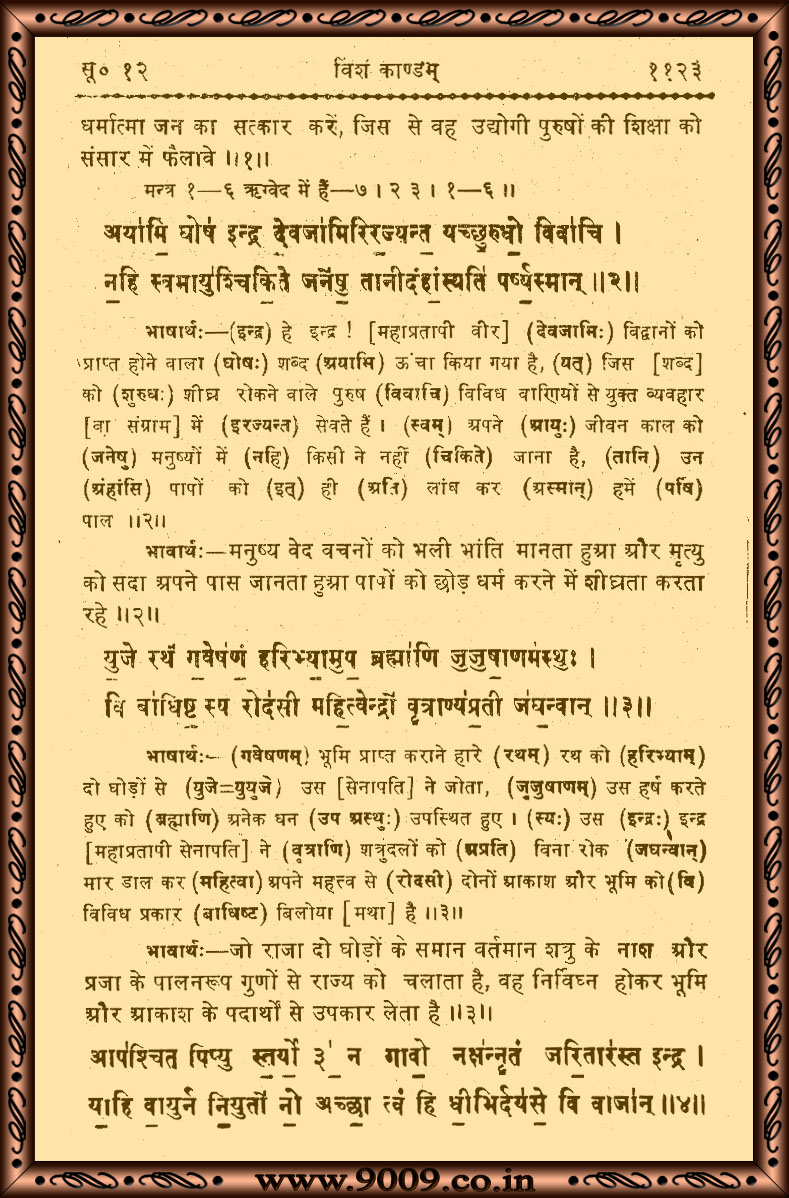 सू० १२ विंशं काण्डम् ११२३
धर्मात्मा जन का सत्कार करें, जिस से वह उद्योगी पुरुषों की शिक्षा को
संसार में फैलावे ॥१॥
मन्त्र १—६ ऋग्वेद में हैं—७ । २३ । १—६ ॥
अया॑मि॒ घोष॑ इन्द्र दे॒वजा॑मिरिर॒ज्यन्त॒ यच्छु॒रुधो॒ विवा॑चि ।
न॒हि स्वमायु॑श्चिकि॒ते जने॑षु॒ तानीदंहां॒स्यति॑ पर्ष्य॒स्मान् ॥२॥
भाषार्थः—(इन्द्र) हे इन्द्र ! [महाप्रतापी वीर] (देवजामिः) विद्वानों को
प्राप्त होने वाला (घोषः) शब्द (अयामि) ऊंचा किया गया है, (यत्) जिस [शब्द]
को (शुरुधः) शीघ्र रोकने वाले पुरुष (विवाचि) विविध वाणियों से युक्त व्यवहार
[वा संग्राम] में (इरज्यन्त) सेवते हैं । (स्वम्) अपने (आयुः) जीवन काल को
(जनेषु) मनुष्यों में (नहि) किसी ने नहीं (चिकिते) जाना है, (तानि) उन
(अंहांसि) पापों को (इत्) ही (अति) लांघ कर (अस्मान्) हमें (पर्षि)
पाल ॥२॥
भावार्थः—मनुष्य वेद वचनों को भली भांति मानता हुआ और मृत्यु
को सदा अपने पास जानता हुआ पापों को छोड़ धर्म करने में शीघ्रता करता
रहे ॥२॥
यु॒जे रथं॑ ग॒वेष॑णं॒ हरि॑भ्या॒मुप॒ ब्रह्मा॑णि जु॒जु॒षा॒णम॑स्थुः ।
वि बा॑धिष्ट॒ स्य रोद॑सी महि॒त्वेन्द्रो॑ वृ॒त्राण्य॑प्र॒ती ज॑घ॒न्वान् ॥३॥
भाषार्थः— (गवेषणम्) भूमि प्राप्त कराने हारे (रथम्) रथ को (हरिभ्याम्)
दो घोड़ों से (युजे=युयुजे) उस [सेनापति] ने जोता, (जुजुषाणम्) उस हर्ष करते
हुए को (ब्रह्माणि) अनेक धन (उप अस्थुः) उपस्थित हुए । (स्यः) उस (इन्द्रः) इन्द्र
[महाप्रतापी सेनापति] ने (वृत्राणि) शत्रुदलों को (अप्रति) विना रोक (जघन्वान्)
मार डाल कर (महित्वा) अपने महत्त्व से (रोदसी) दोनों आकाश और भूमि को (वि)
विविध प्रकार (बाधिष्ट) बिलोया [मथा] है ॥३॥
भावार्थः—जो राजा दो घोड़ों के समान वर्तमान शत्रु के नाश और
प्रजा के पालनरूप गुणों से राज्य को चलाता है, वह निर्विघ्न होकर भूमि
और आकाश के पदार्थों से उपकार लेता है ॥३॥
आप॑श्चित् पिप्यु स्त॒र्यो॒ ३॒॑ न गावो॒ नक्ष॑न्नृ॒तं ज॑रि॒तार॑स्त इन्द्र ।
या॒हि वा॒युर्न नि॒युतो॑ नो॒ अच्छा॒ त्वं हि धी॒भिर्दय॑से॒ वि वाजा॑न् ॥४॥
www.9009.co.in